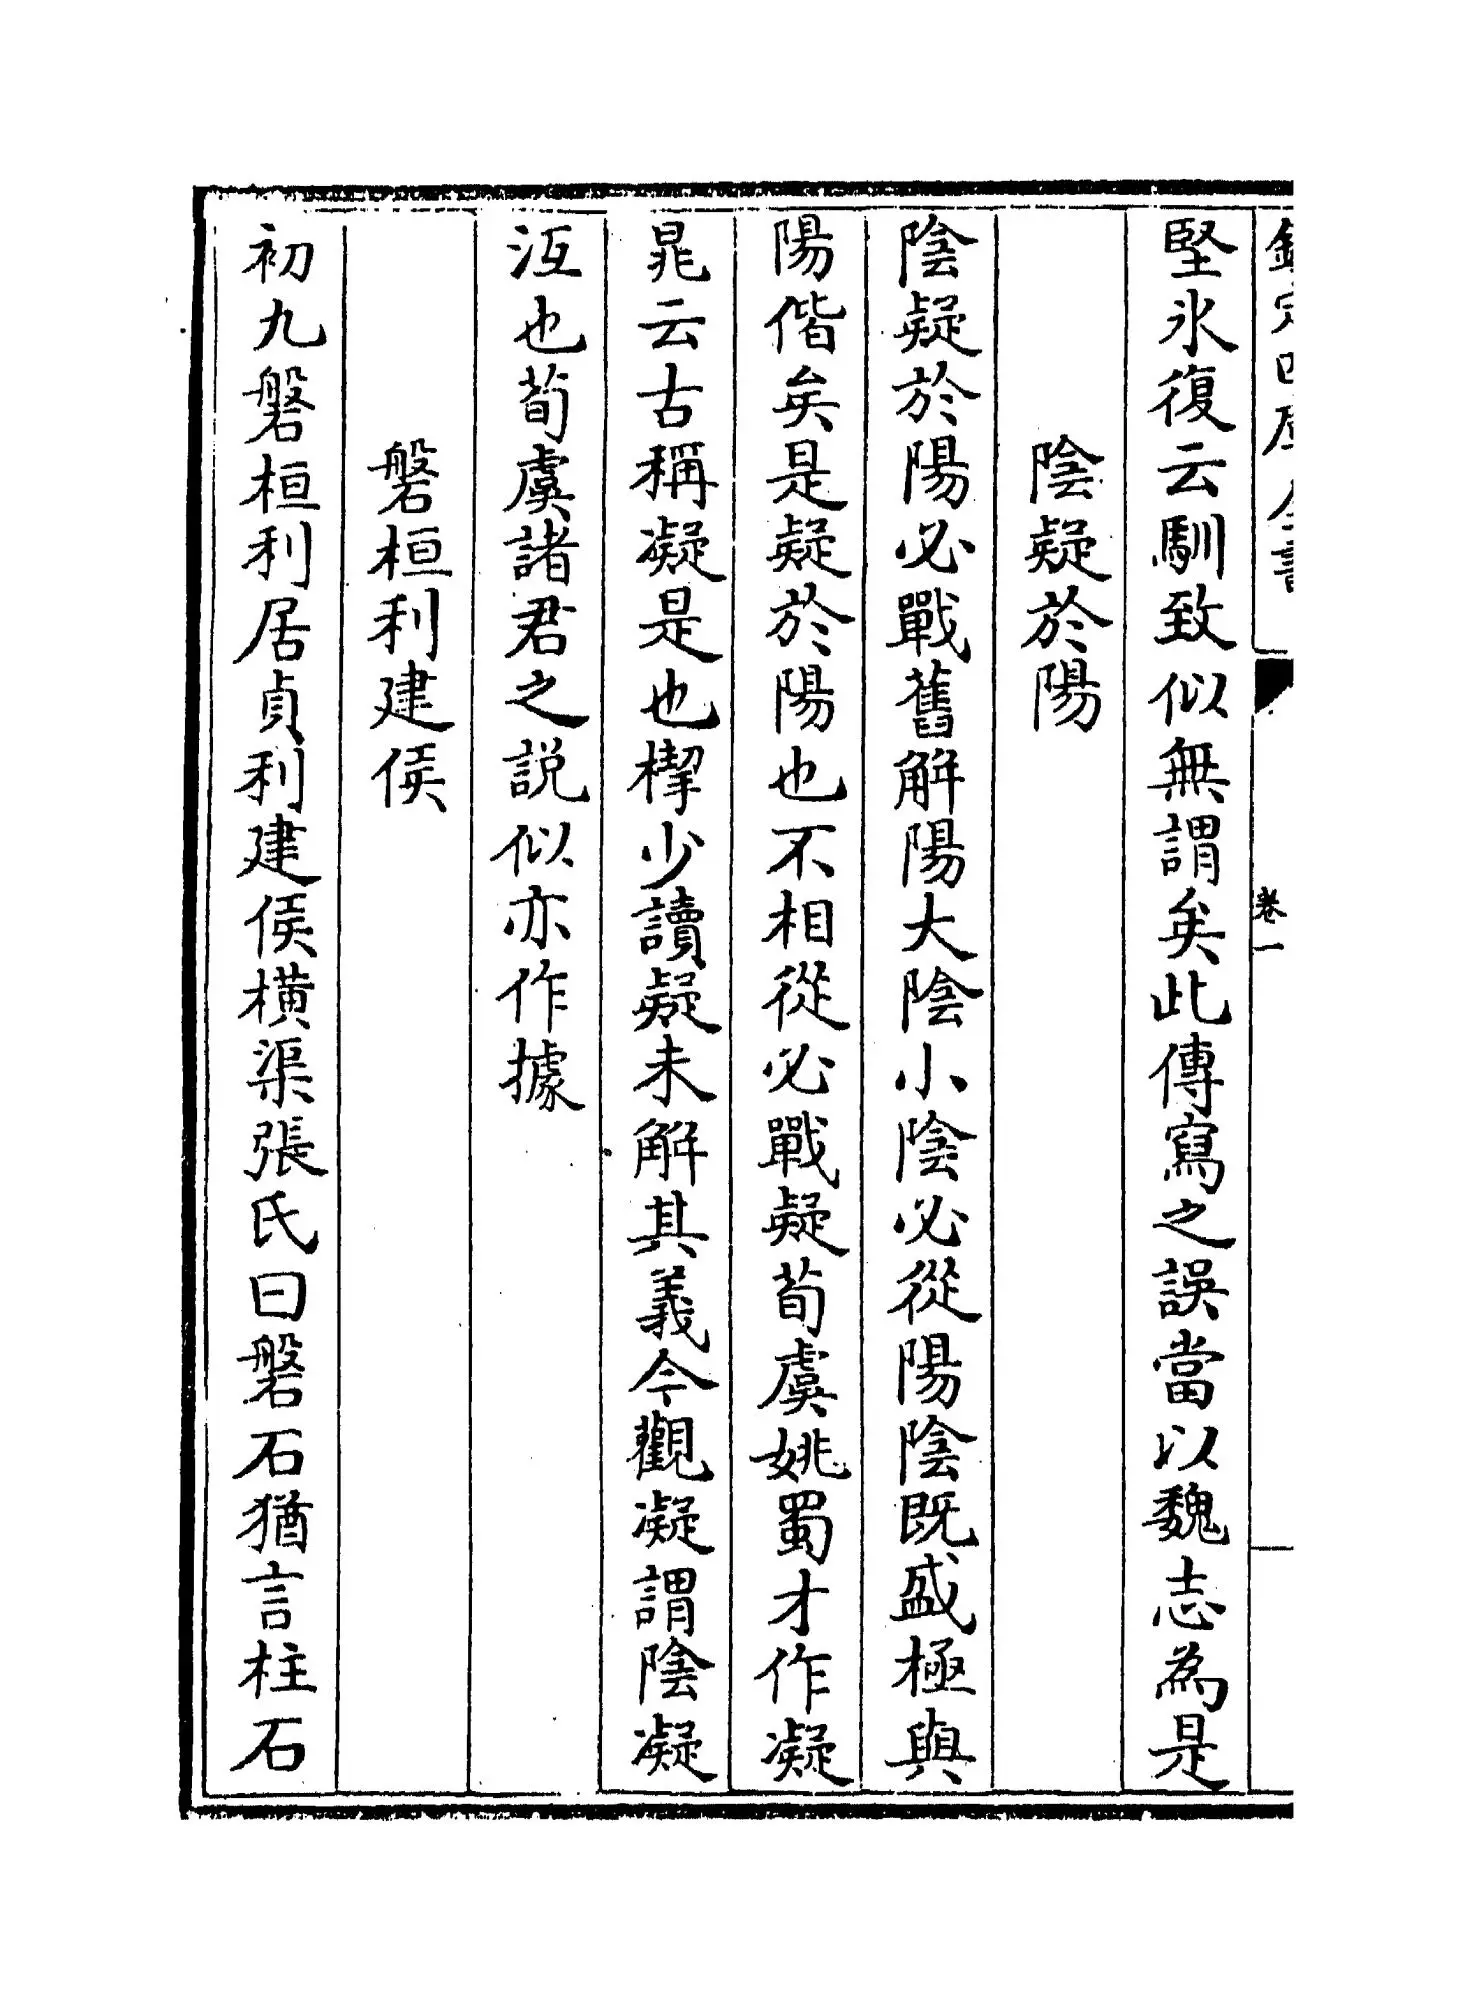 欽定四庫全書
卷一
堅氷復云馴致似無謂矣此傳寫之誤當以魏志為是
陰疑於陽
陰疑於陽必戰舊解陽大陰小陰必從陽陰既盛極與
陽偕矣是疑於陽也不相從必戰疑荀虞姚蜀才作凝
晁云古稱凝是也楔少讀疑未解其義今觀凝謂陰凝
沍也荀虞諸君之說似亦作據
磐桓利建侯
初九磐桓利居貞利建侯橫渠張氏曰磐石猶言柱石